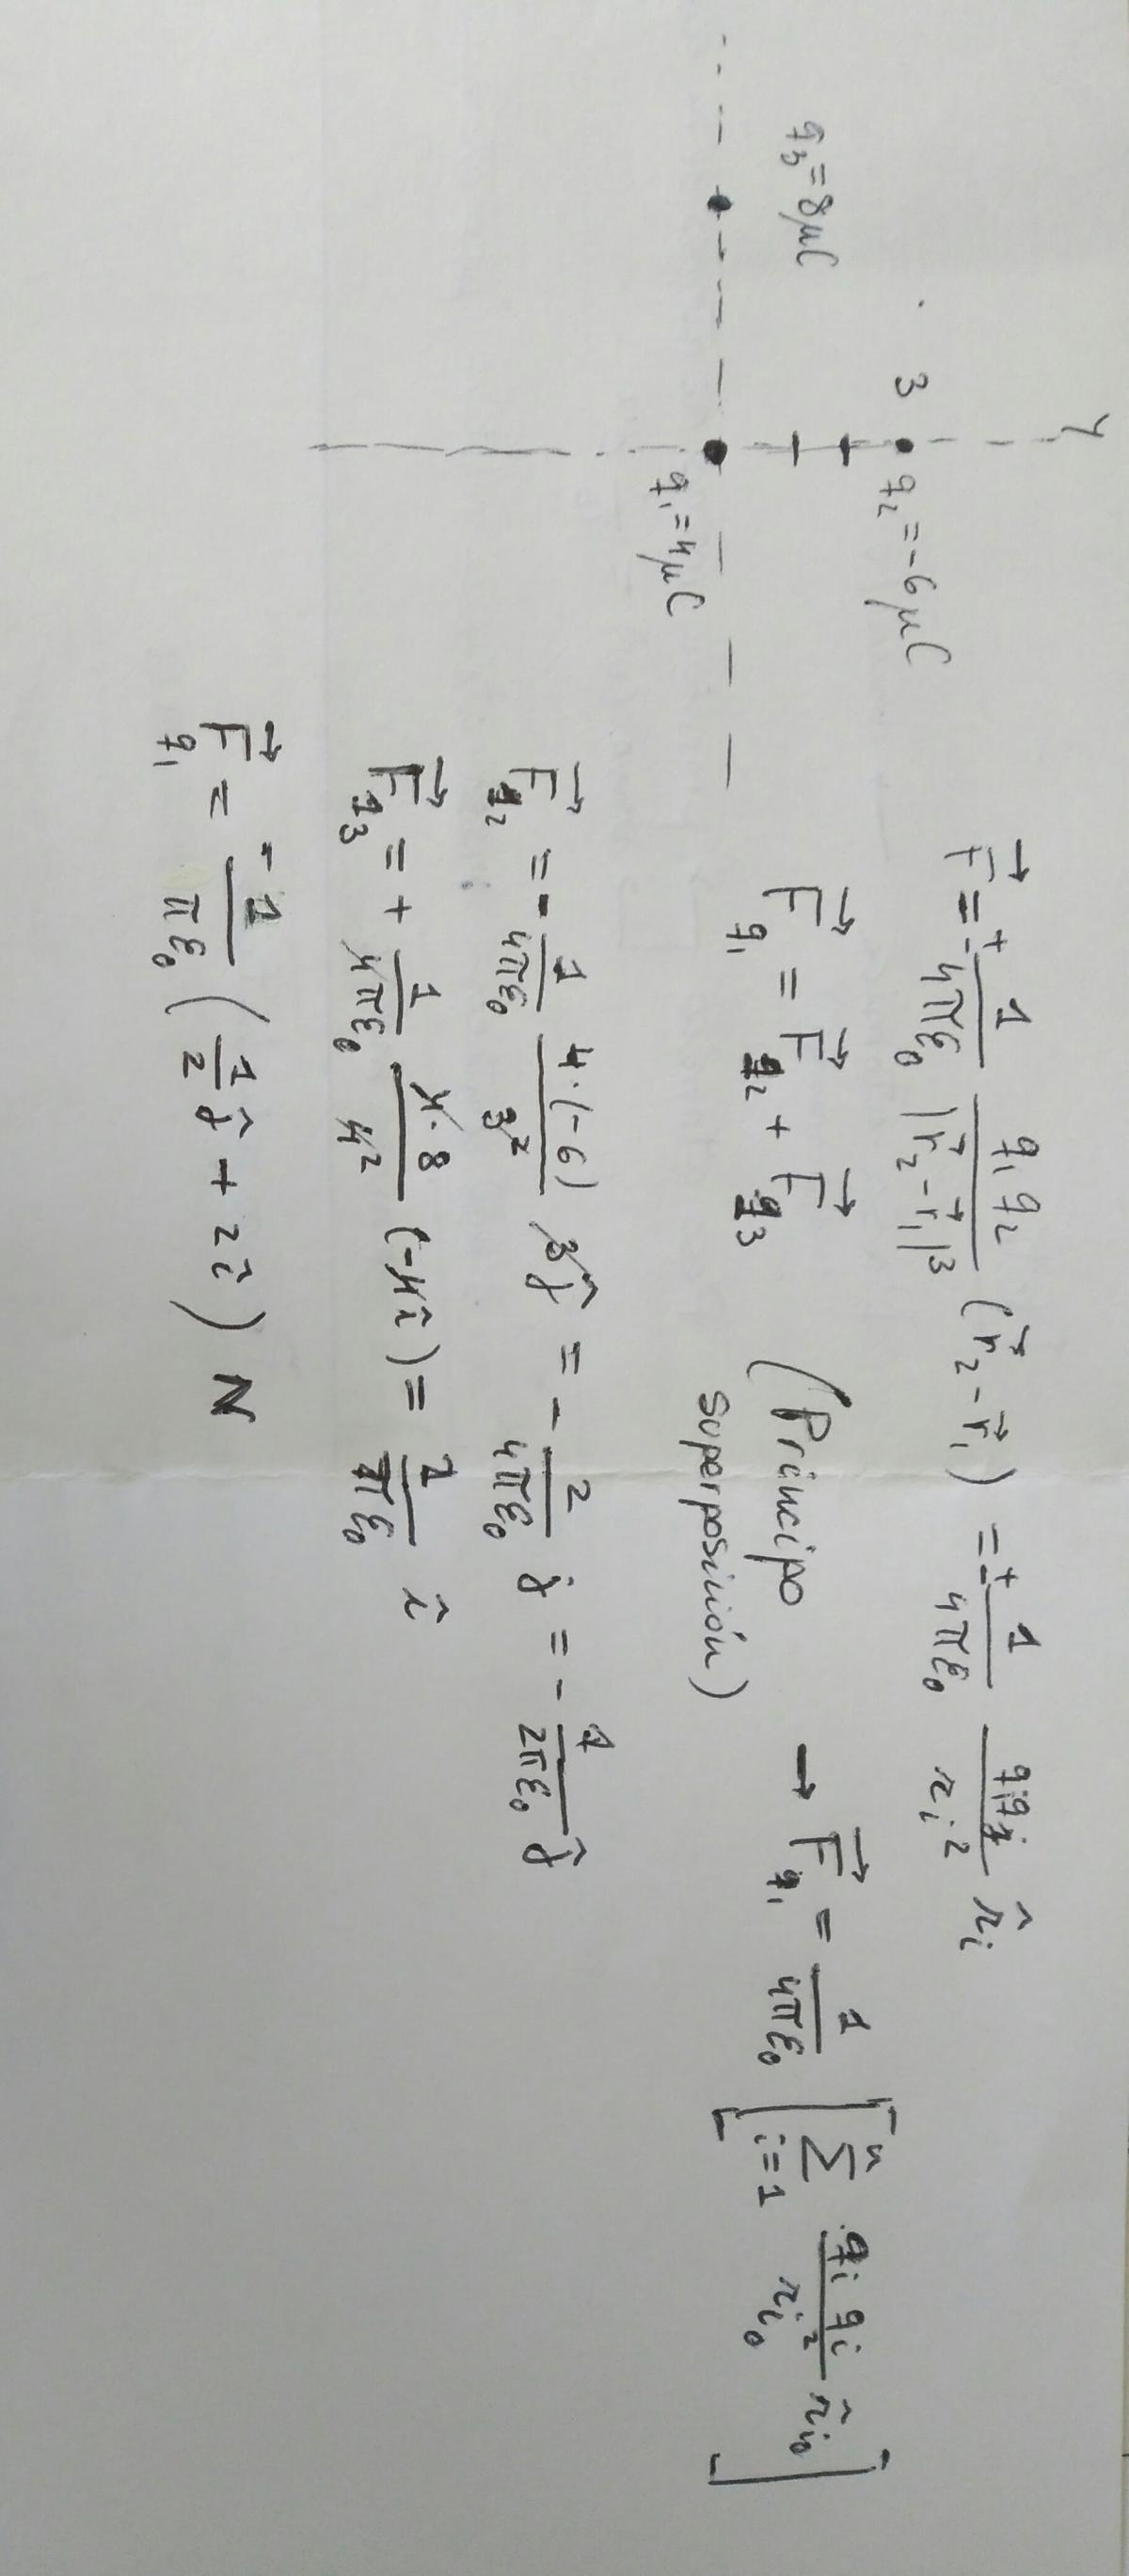 y
3
q₂ = -6 μC
q₃ = 8 μC
q₁ = 4 μC
F⃗ = ± 1/(4πε₀) q₁ q₂/|r⃗₂ - r⃗₁|³ (r⃗₂ - r⃗₁) = ± 1/(4πε₀) qᵢqⱼ/rᵢ² r̂ᵢ
F⃗q₁ = F⃗q₂ + F⃗q₃ (Principo superposición) → F⃗q₁ = 1/(4πε₀) [ Σ i=1 n qᵢ qᵢ/rᵢ₀² r̂ᵢ₀ ]
F⃗₂ = - 1/(4πε₀) 4·(-6)/3² 3ĵ = - 2/(4πε₀) ĵ = - 1/(2πε₀) ĵ
F⃗q₃ = + 1/(4πε₀) 4·8/4² (-4î) = 2/(πε₀) î
F⃗q₁ = -1/(πε₀) ( 1/2 ĵ + 2î ) N